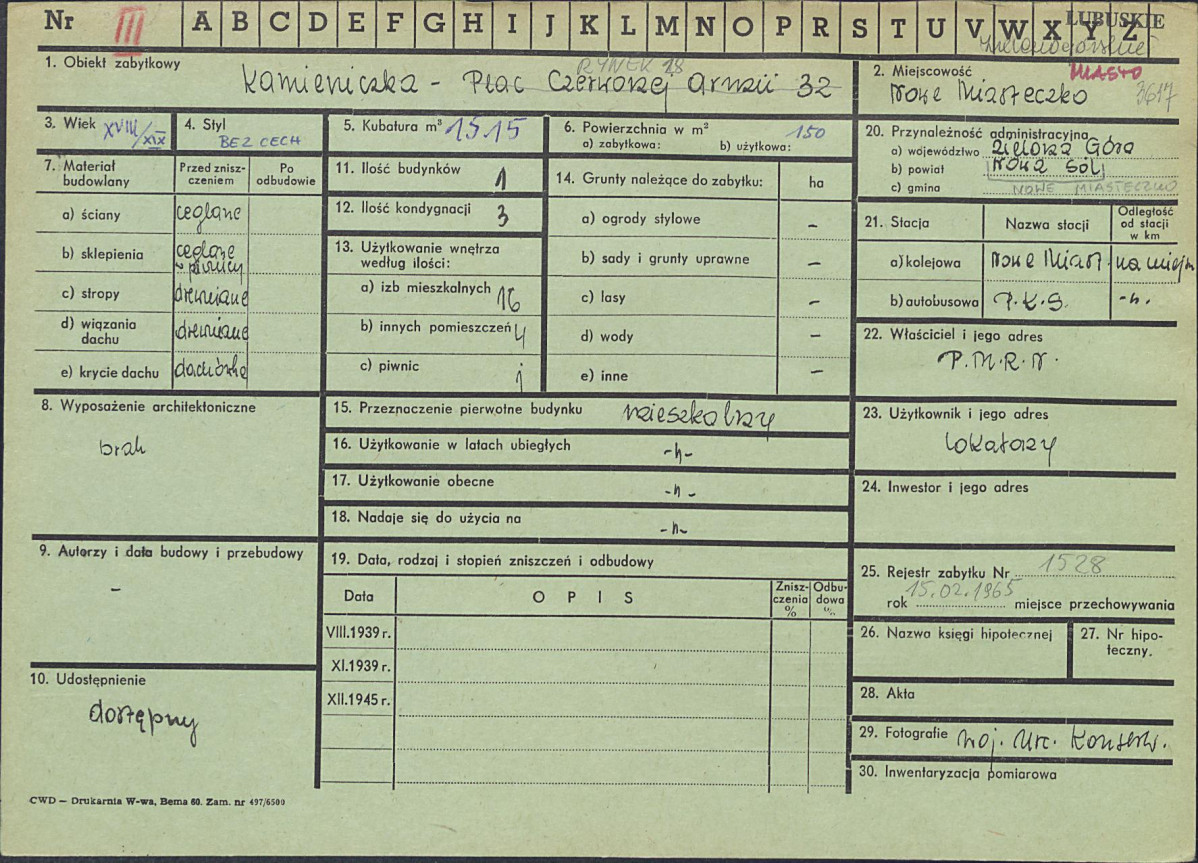 Nr III A B C D E F G H I J K L M N O P R S T U V W X Y Z
LUBUSKIE
zielonogórskie
1. Obiekt zabytkowy
RYNEK 28
Kamieniczka – Plac Czerwonej Armii 32
2. Miejscowość
MIASTO
Nowe Miasteczko
3617
3. Wiek XVIII/XIX
4. Styl
BEZ CECH
5. Kubatura m³ 1515
6. Powierzchnia w m² 150
a) zabytkowa: b) użytkowa:
7. Materiał budowlany
Przed zniszczeniem
Po odbudowie
a) ściany ceglane
b) sklepienia ceglane w piwnicy
c) stropy drewniane
d) wiązania dachu drewniane
e) krycie dachu dachówka
8. Wyposażenie architektoniczne
brak
9. Autorzy i data budowy i przebudowy
–
10. Udostępnienie
dostępny
CWD — Drukarnia W-wa, Bema 60. Zam. nr 497/6500
11. Ilość budynków 1
12. Ilość kondygnacji 3
13. Użytkowanie wnętrza według ilości:
a) izb mieszkalnych 16
b) innych pomieszczeń 4
c) piwnic 1
14. Grunty należące do zabytku: ha
a) ogrody stylowe –
b) sady i grunty uprawne –
c) lasy –
d) wody –
e) inne –
15. Przeznaczenie pierwotne budynku mieszkalny
16. Użytkowanie w latach ubiegłych -"-
17. Użytkowanie obecne -"-
18. Nadaje się do użycia na -"-
19. Data, rodzaj i stopień zniszczeń i odbudowy
Data
O P I S
Zniszczenia %
Odbudowa %
VIII.1939 r.
XI.1939 r.
XII.1945 r.
20. Przynależność administracyjna
a) województwo Zielona Góra
b) powiat Nowa Sól
c) gmina NOWE MIASTECZKO
21. Stacja
Nazwa stacji
Odległość od stacji w km
a) kolejowa Nowe Miast. na miejscu
b) autobusowa P.K.S. -"-
22. Właściciel i jego adres
P.M.R.N.
23. Użytkownik i jego adres
lokatorzy
24. Inwestor i jego adres
25. Rejestr zabytku Nr 1528
15.02.1965
rok miejsce przechowywania
26. Nazwa księgi hipotecznej
27. Nr hipoteczny.
28. Akta
29. Fotografie Woj. Urz. Konserw.
30. Inwentaryzacja pomiarowa